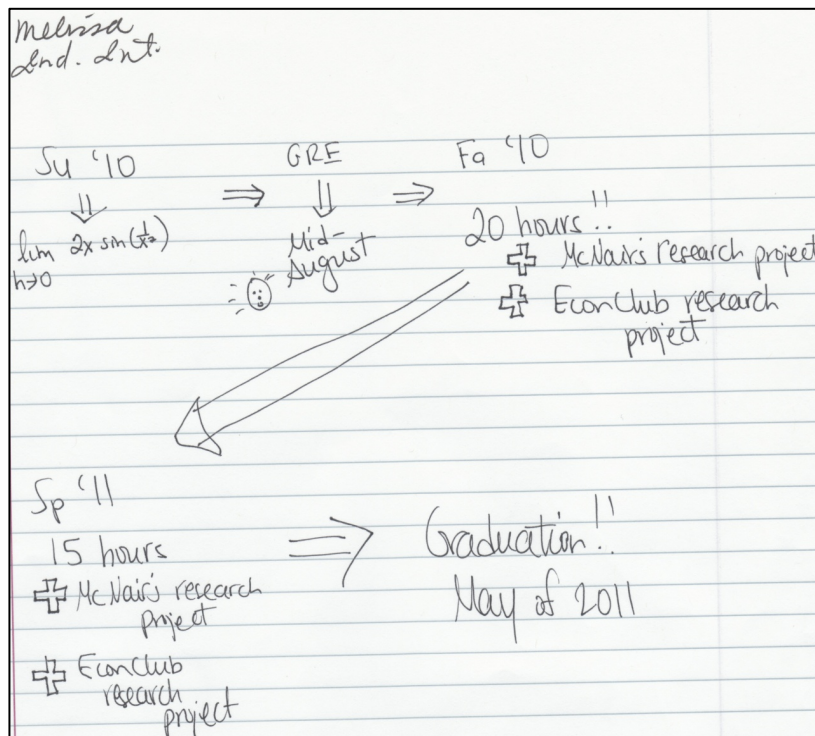 Melissa
2nd. Int.
Su '10
⇒
GRE
⇒
Fa '10
⇓
⇓
lim 2x sin(1/x²)
h→0
Mid-
August
20 hours!!
✚ McNair's research project
✚ EconClub research
project
Sp '11
15 hours
✚ McNair's research
project
✚ EconClub
research
project
⇒
Graduation!!
May of 2011